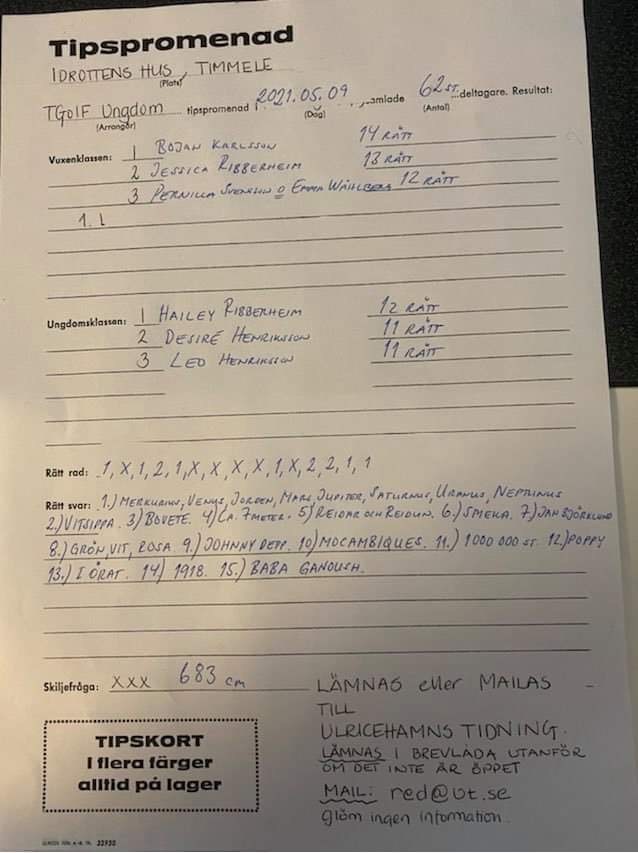 Tipspromenad
IDROTTENS HUS, TIMMELE
(Plats)
TGOIF Ungdom tipspromenad 2021.05.09 samlade 62 st. deltagare. Resultat:
(Arrangör) (Dag) (Antal)
Vuxenklassen: 1 BOJAN KARLSSON 14 RÄTT
2 JESSICA RIBBERHEIM 13 RÄTT
3 PERNILLA SVENSSON O EMMA WAHLBERG 12 RÄTT
Ungdomsklassen: 1 HAILEY RIBBERHEIM 12 RÄTT
2 DESIRÉ HENRIKSSON 11 RÄTT
3 LEO HENRIKSSON 11 RÄTT
Rätt rad: 1, X, 1, 2, 1, X, X, X, X, 1, X, 2, 2, 1, 1
Rätt svar: 1.) MERKURIUS, VENUS, JORDEN, MARS, JUPITER, SATURNUS, URANUS, NEPTUNUS
2.) VITSIPPA. 3) BOVETE. 4) CA. 7 METER. 5) REIDAR OCH REIDUN. 6.) SMEKA. 7) JAN BJÖRKLUND
8.) GRÖN, VIT, ROSA. 9.) JOHNNY DEPP. 10) MOCAMBIQUES. 11.) 1000 000 ST. 12) POPPY
13.) I ÖRAT. 14) 1918. 15.) BABA GANOUSH.
Skiljefråga: XXX 683 cm
LÄMNAS eller MAILAS
TILL
ULRICEHAMNS TIDNING.
LÄMNAS I BREVLÅDA UTANFÖR
OM DET INTE ÄR ÖPPET
MAIL: red@ut.se
glöm ingen information.
TIPSKORT
I flera färger
alltid på lager